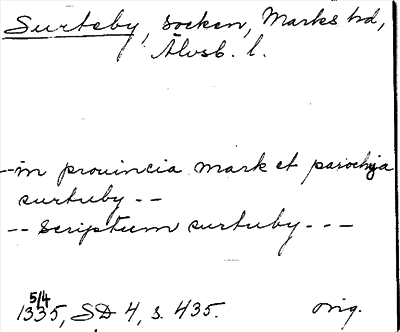 Surteby, socken, Marks hd,
Älvsb. l.
--in prouincia mark et parochya
surtuby --
-- Scriptum surtuby ---
5/4
1335, SD 4, s. 435. orig.